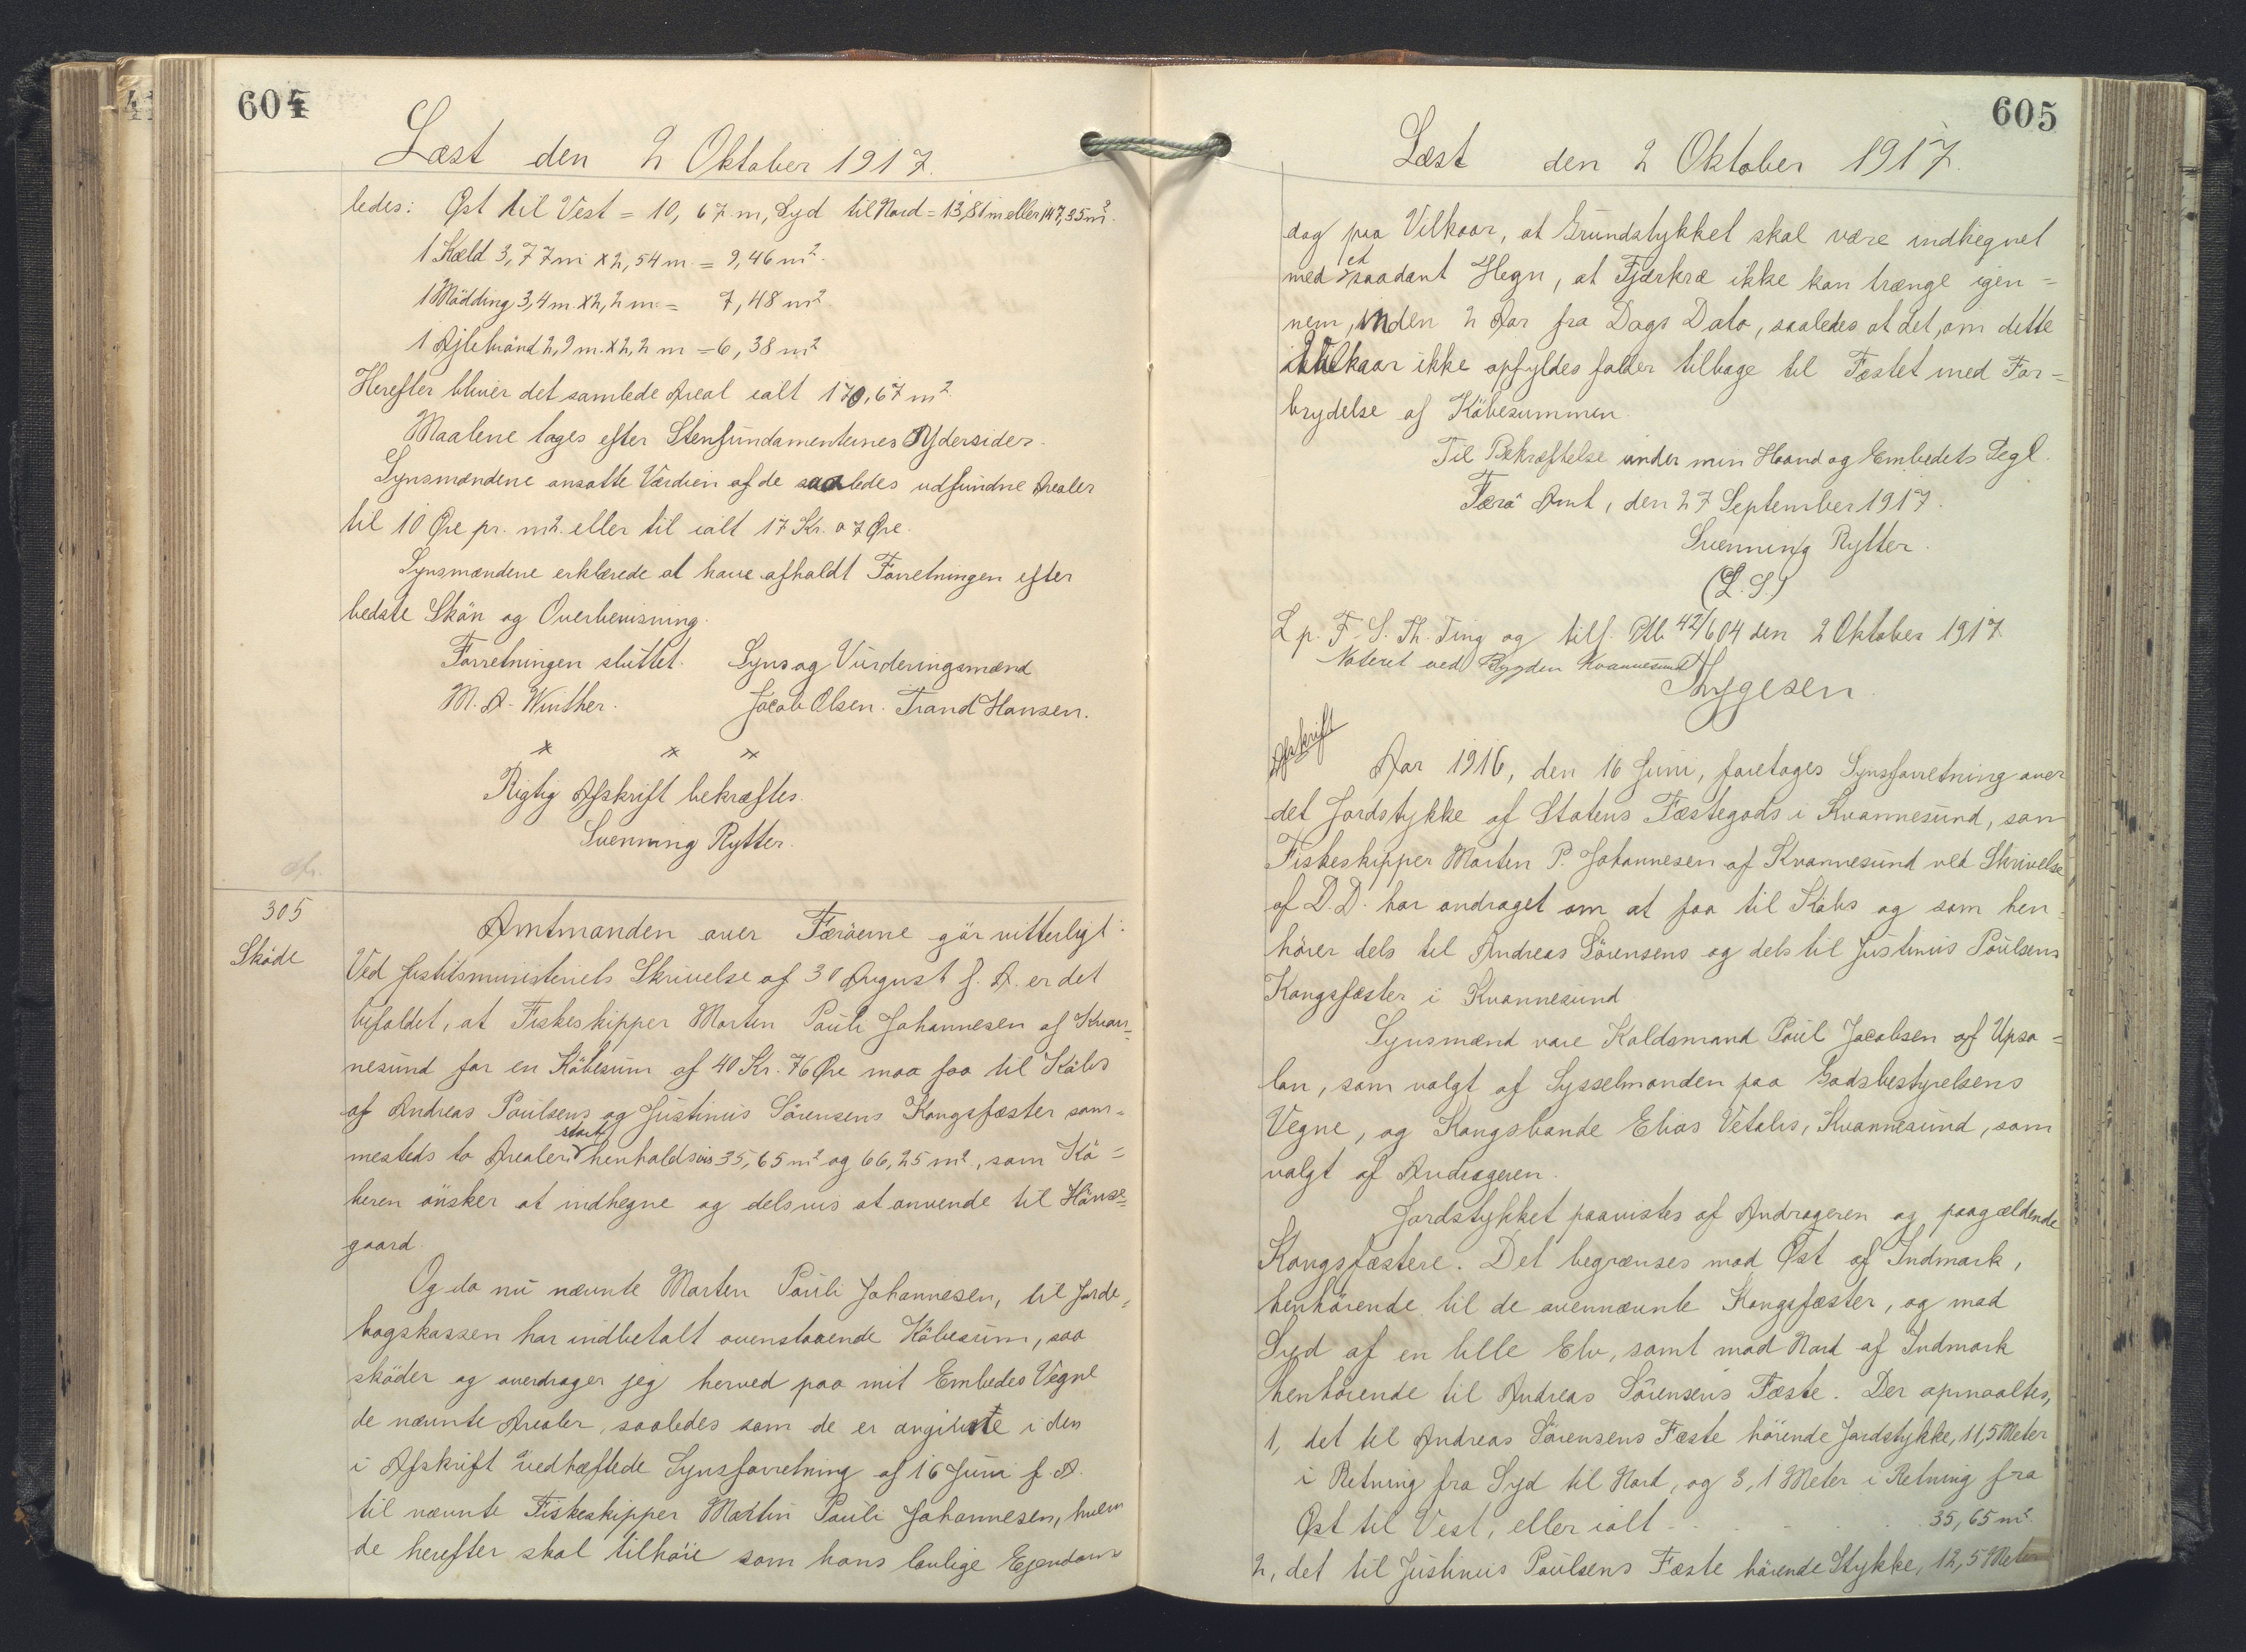 604
Læst den 2 Oktober 1917.
ledes: Øst til Vest = 10,67 m, Syd til Nord = 13,81 m eller 147,35 m².
1 Kæld 3,77 m x 2,54 m. = 9,46 m².
1 Mödding 3,4 m. x 2,2 m. = 7,48 m²
1 Ajlebrönd 2,9 m. x 2,2 m = 6,38 m²
Herefter bliver det samlede Areal ialt 170,67 m²
Maalene tages efter Stenfundamenternes Ydersider.
Synsmændene ansatte Værdien af de saaledes udfundne Arealer
til 10 Øre pr. m2. eller til ialt 17 Kr. 07 Øre.
Synsmændene erklærede at have afholdt Forretningen efter
bedste Skön og Overbevisning.
Forretningen sluttet. Syns og Vurderingsmænd
M. A. Winther. Jacob Olsen. Trand Hansen.
x x x
Rigtig Afskrift bekræftes.
Svenning Rytter.
305
Sköde
Amtmanden over Færöerne gör vitterligt:
Ved Justitsministeriets Skrivelse af 30 August f. A. er det
bifaldet, at Fiskeskipper Morten Pauli Johannesen af Kvan-
nesund for en Köbesum af 40 Kr. 76 Øre maa faa til Köbs
af Andreas Poulsens og Justinus Sörensens Kongsfæster sam-
mesteds to Arealer stort henholdsvis 35,65 m² og 66,25 m², som Kö-
beren önsker at indhegne og delsvis at anvende til Hönse-
gaard.
Og da nu nævnte Morten Pauli Johannesen, til Jorde-
bogskassen har indbetalt ovenstaaende Köbesum, saa
sköder og overdrager jeg herved paa mit Embedes Vegne
de nævnte Arealer, saaledes som de er angivne i den
i Afskrift vedhæftede Synsforretning af 16 Juni f. A.
til nævnte Fiskeskipper Martin Pauli Johannesen, hvem
de herefter skal tilhöre som hans lovlige Ejendom
605
Læst den 2 Oktober 1917.
dog paa Vilkaar, at Grundstykket skal være indhegnet
med et saadant Hegn, at Fjærkræ ikke kan trænge igen-
nem, inden 2 Aar fra Dags Dato, saaledes at det, om dette
Vilkaar ikke opfyldes falder tilbage til Fæstet med For-
brydelse af Köbesummen.
Til Bekræftelse under min Haand og Embedets Segl.
Færö Amt, den 27 September 1917.
Svenning Rytter.
(L. S.)
L p. F. S. Th. Ting og tilf. Ptb 42/604 den 2 Oktober 1917
Noteret ved Bygden Kvannesund
Thygesen.
Afskrift
Aar 1916, den 16 Juni, foretages Synsforretning over
det Jordstykke af Statens Fæstegods i Kvannesund, som
Fiskeskipper Morten P. Johannesen af Kvannesund ved Skrivelse
af D. D. har andraget om at faa til Köbs og som hen-
hörer dels til Andreas Sörensens og dels til Justinus Poulsens
Kongsfæster i Kvannesund
Synsmænd vare Koldsmand Poul Jacobsen af Upsa-
len, som valgt af Sysselmanden paa Godsbestyrelsens
Vegne, og Kongsbonde Elias Vetalis, Kvannesund, som
valgt af Andrageren.
Jordstykket paavistes af Andrageren og paagældende
Kongsfæstere. Det begrænses mod Øst af Indmark,
henhörende til de ovennævnte Kongsfæster, og mod
Syd af en lille Elv, samt mod Nord af Indmark
henhörende til Andreas Sörensens Fæste. Der opmaaltes,
1, det til Andreas Sörensens Fæste hörende Jordstykke, 11,5 Meter
i Retning fra Syd til Nord, og 3,1 Meter i Retning fra
Øst til Vest, eller ialt - - . . . . . 35,65 m².
2, det til Justinus Poulsens Fæste hörende Stykke, 12,5 Meter